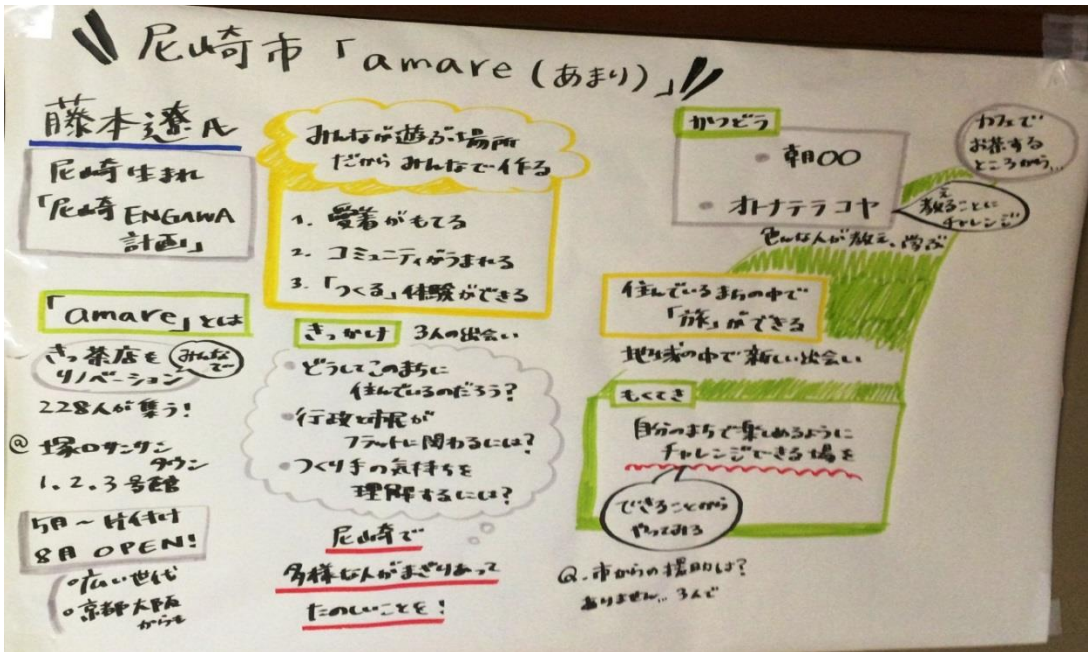 尼崎市「amare(あまり)」
藤本遼さん
尼崎生まれ
「尼崎ENGAWA
計画」
「amare」とは
きっ茶店を
みんなで
リノベーション
228人が集う!
@塚口サンサン
タウン
1.2.3号館
5月~片付け
8月OPEN!
広い世代
京都大阪
からも
みんなが遊ぶ場所
だからみんなで作る
1. 愛着がもてる
2. コミュニティがうまれる
3.「つくる」体験ができる
きっかけ 3人の出会い
どうしてこのまちに
住んでいるのだろう?
行政と市民が
フラットに関わるには?
つくり手の気持ちを
理解するには?
尼崎で
多様な人がまざりあって
たのしいことを!
かつどう
朝〇〇
オトナテラコヤ
カフェで
お茶する
ところから…
教えることに
チャレンジ
色んな人が教え、学ぶ
住んでいるまちの中で
「旅」ができる
地域の中で新しい出会い
もくてき
自分のまちで楽しめるように
チャレンジできる場を
できることから
やってみる
Q.市からの援助は?
ありません…3人で